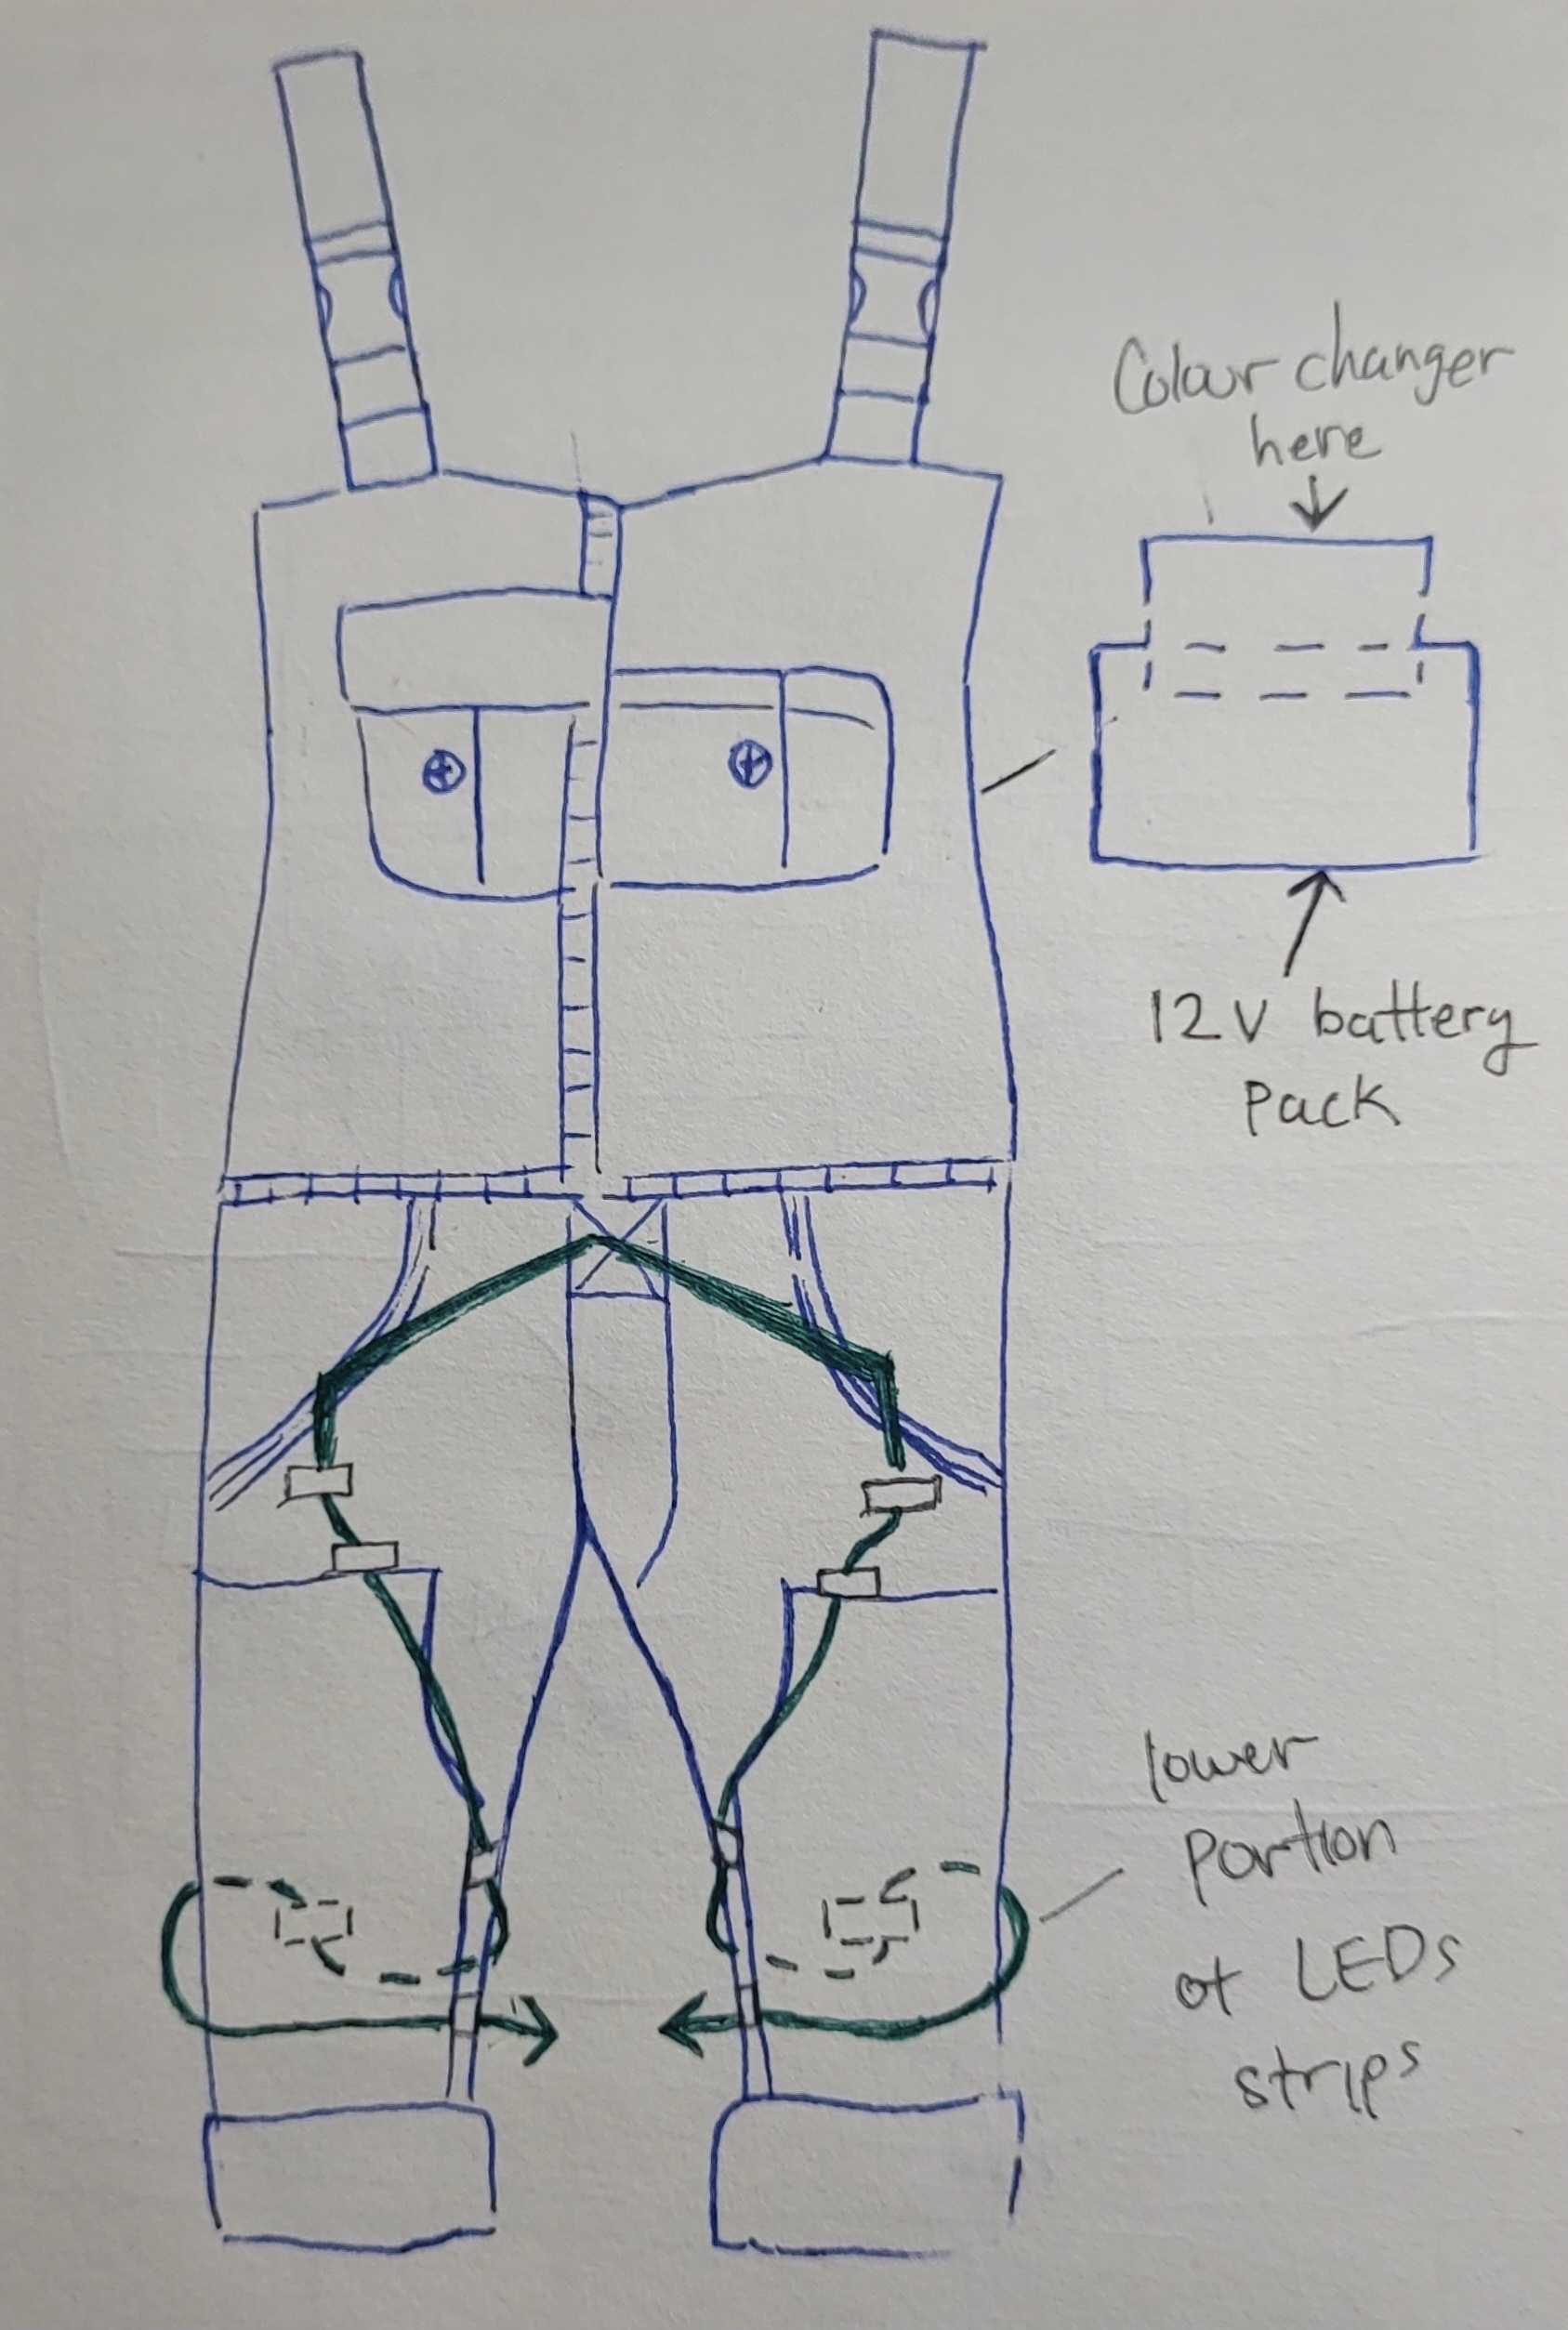 Colour changer
here
12V battery
pack
lower
portion
of LEDs
strips